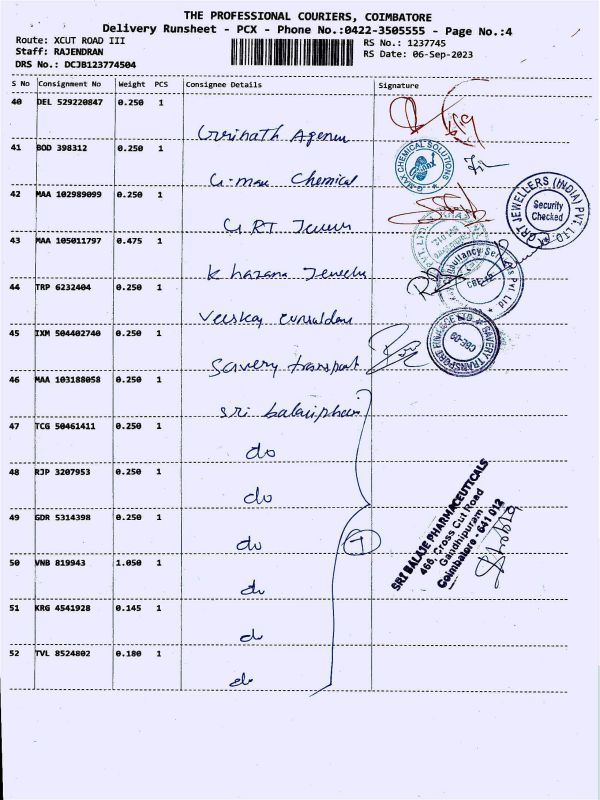 THE PROFESSIONAL COURIERS, COIMBATORE
Delivery Runsheet - PCX - Phone No.:0422-3505555 - Page No.:4
Route: XCUT ROAD III
RS No.: 1237745
Staff: RAJENDRAN
RS Date: 06-Sep-2023
DRS No.: DCJB123774504
S No Consignment No Weight PCS Consignee Details Signature
40 DEL 529220847 0.250 1
41 BOD 398312 0.250 1 G-max Chemical
42 MAA 102989099 0.250 1 G.RT Jewers
43 MAA 105011797 0.475 1 Khazana Jewelry
44 TRP 6232404 0.250 1
45 IXM 504402740 0.250 1 Savery transport
46 MAA 103188058 0.250 1 Sri balaji pharm
47 TCG 50461411 0.250 1 do
48 RJP 3207953 0.250 1 do
49 GDR 5314398 0.250 1 do
50 VNB 819943 1.050 1 do
51 KRG 4541928 0.145 1 do
52 TVL 8524802 0.180 1 do
7
G-MAX CHEMICAL SOLUTIONS
GRT JEWELLERS (INDIA) PVT. LTD.
Security
Checked
Consultancy Services Pvt Ltd
SAVERY TRANSPORT FINANCE LTD
CBE-09
SRI BALAJE PHARMACEUTICALS
466, Cross Cut Road
Gandhipuram
Coimbatore - 641 012